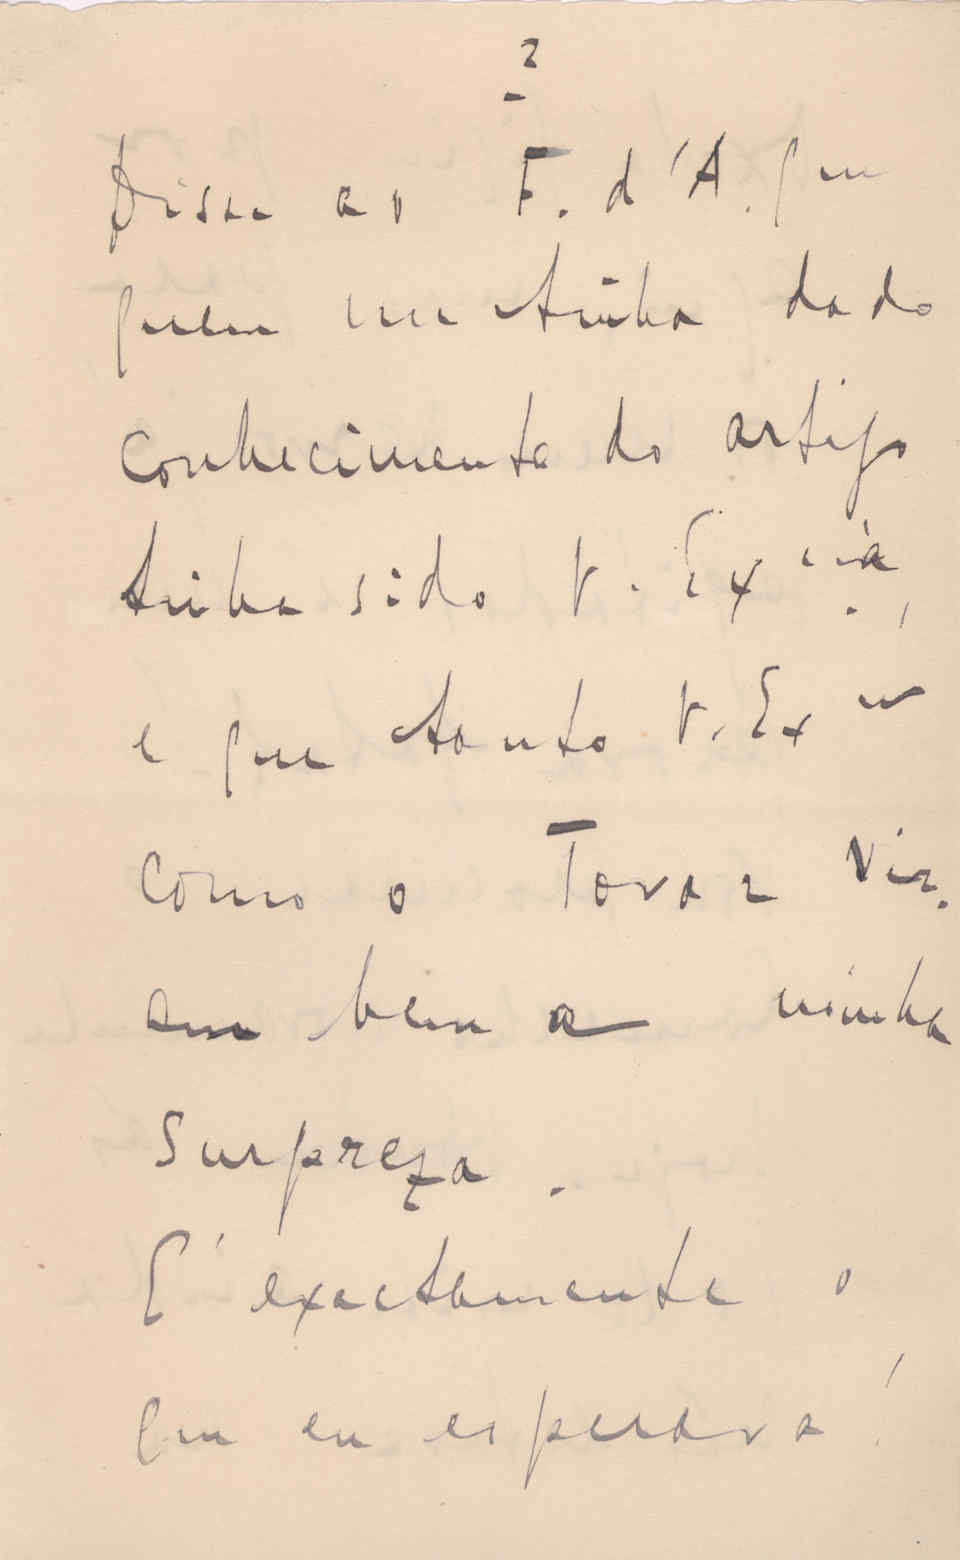 2
Disse ao F. d'A. que
quem me tinha dado
conhecimento do artigo
tinha sido V. Ex.cia,
e que tanto V. Ex.cia
como o Tovar vi-
am bem a minha
surpreza.
E' exactamente o
que eu esperava!